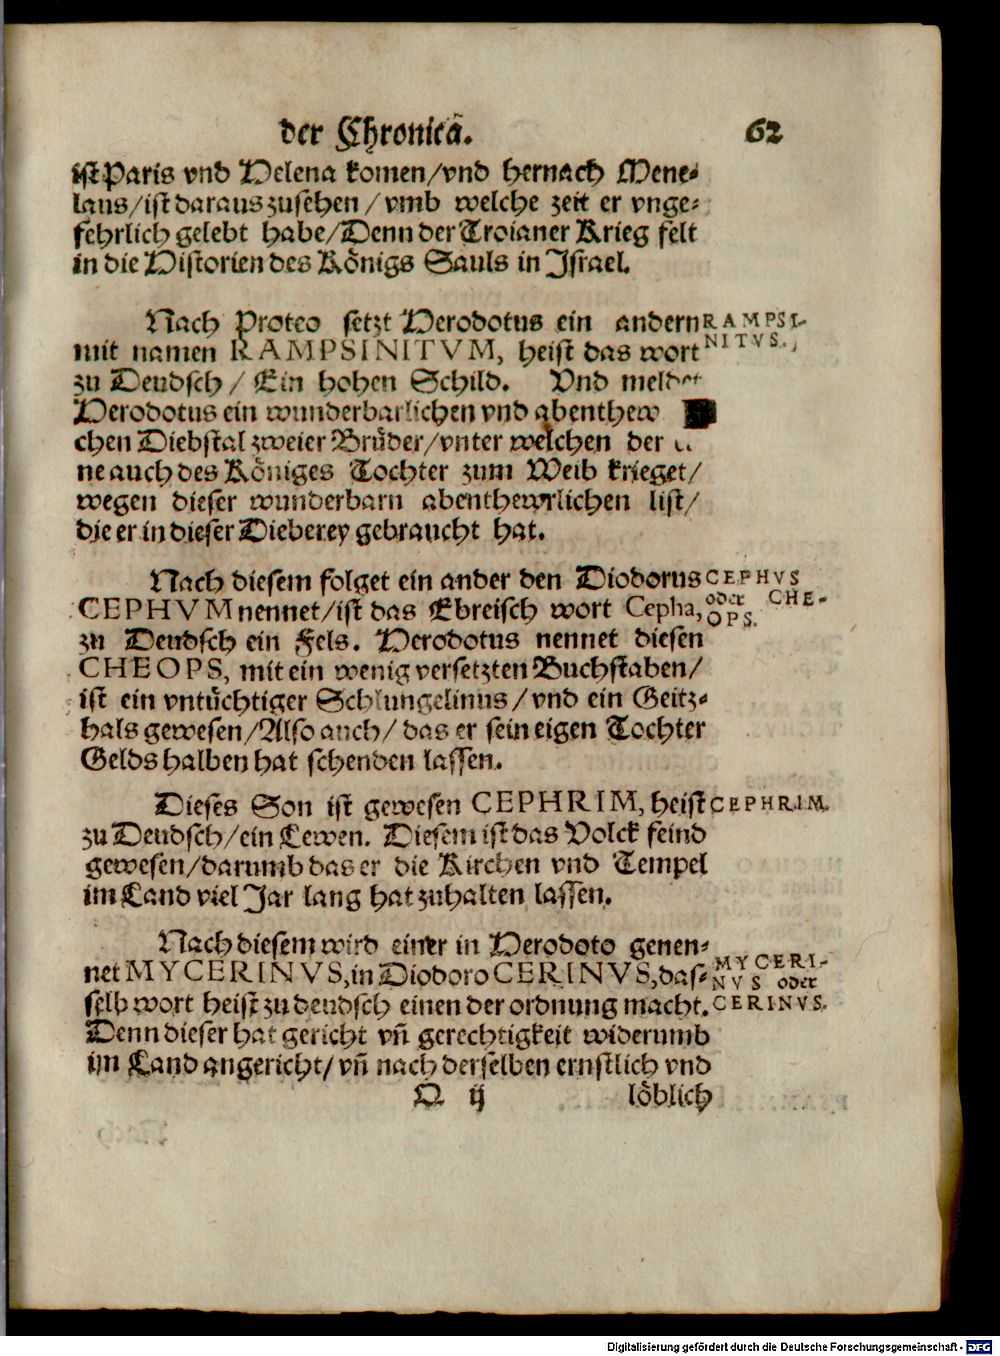 der Chronicā. 62
ist Paris vnd Helena komen/vnd hernach Mene-
laus/ist daraus zusehen/vmb welche zeit er vnge-
fehrlich gelebt habe/Denn der Troianer Krieg felt
in die Historien des Königs Sauls in Israel.
Nach Proteo setzt Herodotus ein andern
RAMPSI-
NITVS.
mit namen RAMPSINITVM, heist das wort
zu Deudsch/Ein hohen Schild. Vnd meldet
Herodotus ein wunderbarlichen vnd abenthew
chen Diebstal zweier Brüder/vnter welchen der
ne auch des Königes Tochter zum Weib krieget/
wegen dieser wunderbarn abenthewrlichen list/
die er in dieser Dieberey gebraucht hat.
Nach diesem folget ein ander den Diodorus
CEPHVS
oder CHE-
OPS.
CEPHVM nennet/ist das Ebreisch wort Cepha,
zu Deudsch ein Fels. Herodotus nennet diesen
CHEOPS, mit ein wenig versetzten Buchstaben/
ist ein vntüchtiger Schlungelinus/vnd ein Geitz-
hals gewesen/Also auch/das er sein eigen Tochter
Gelds halben hat schenden lassen.
Dieses Son ist gewesen CEPHRIM, heist
CEPHRIM.
zu Deudsch/ein Lewen. Diesem ist das Volck feind
gewesen/darumb das er die Kirchen vnd Tempel
im Land viel Jar lang hat zuhalten lassen.
Nach diesem wird einer in Herodoto genen-
net MYCERINVS, in Diodoro CERINVS, das-
MYCERI-
NVS oder
CERINVS.
selb wort heist zu deudsch einen der ordnung macht.
Denn dieser hat gericht vñ gerechtigkeit widerumb
im Land angericht/vñ nach derselben ernstlich vnd
Q ij löblich
Digitalisierung gefördert durch die Deutsche Forschungsgemeinschaft - DFG